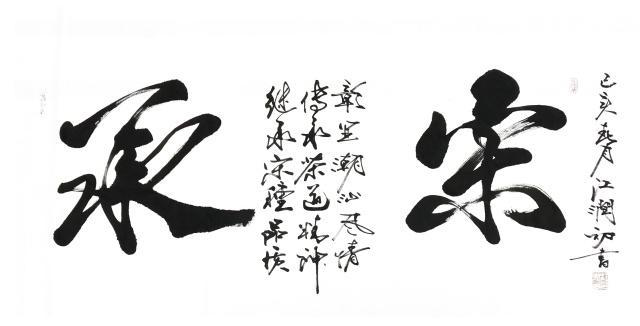 承
继承宋種品质
传承茶道精神
彰显潮汕风情
宋
己亥春月江润初书